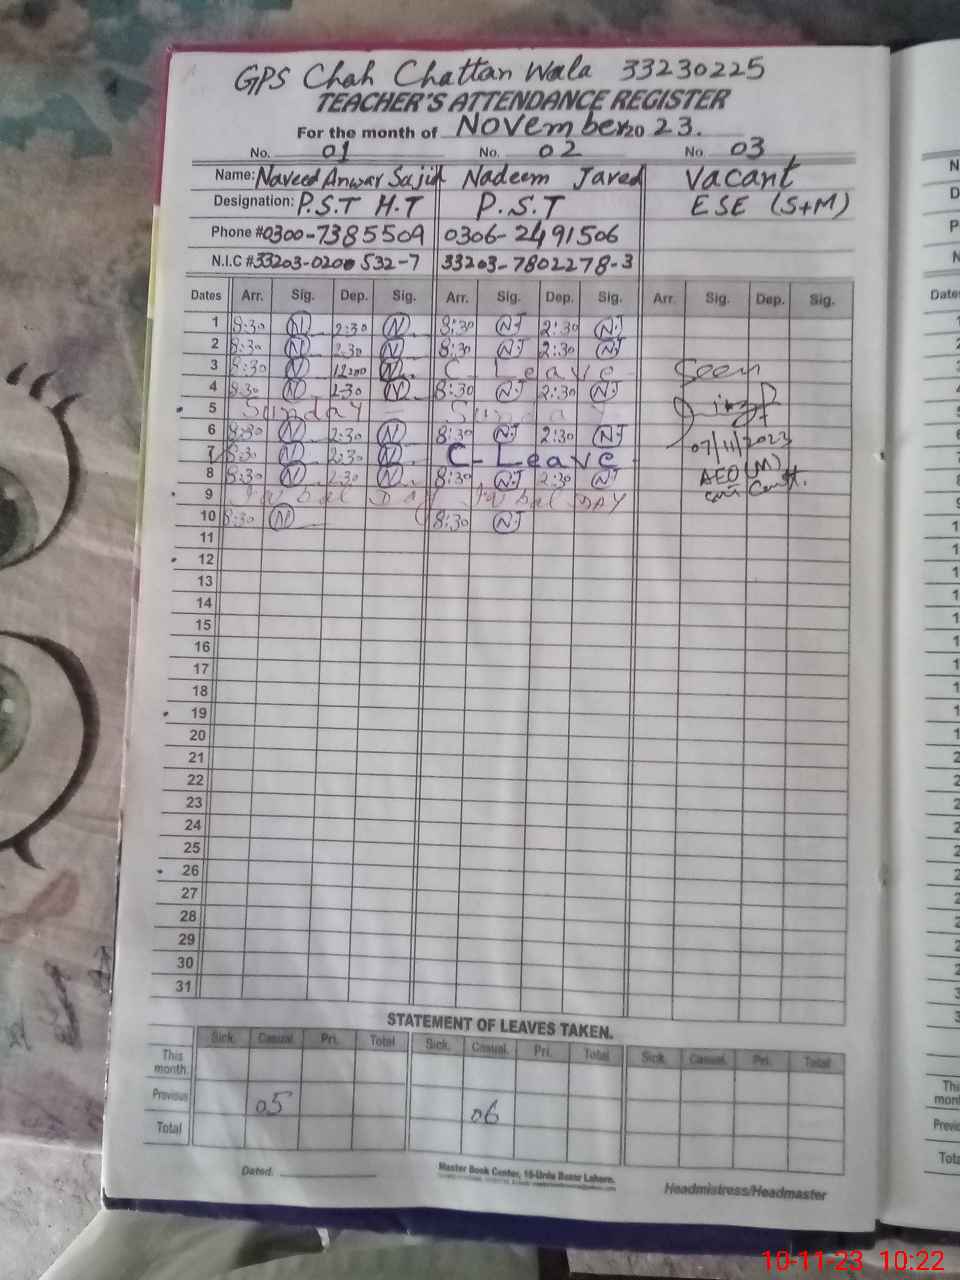 GPS Chah Chattan Wala 33230225
TEACHER'S ATTENDANCE REGISTER
For the month of November 2023.
No. 01 No. 02 No. 03
Name: Naveed Anwar Sajid Nadeem Javed Vacant
Designation: P.S.T H.T P.S.T ESE (S+M)
Phone # 0300-7385509 0306-2491506
N.I.C # 33203-0200532-7 33203-7802278-3
Dates Arr. Sig. Dep. Sig. Arr. Sig. Dep. Sig. Arr. Sig. Dep. Sig.
1 8:30 N 2:30 N 8:30 N.J 2:30 N.J
2 8:30 N 2:30 N 8:30 N.J 2:30 N.J
3 8:30 N 12:00 N C- Leave Seen
4 8:30 N 2:30 N 8:30 N.J 2:30 N.J
5 Sunday - Sunday
6 8:30 N 2:30 N 8:30 N.J 2:30 N.J
07/11/2023
7 8:30 N 2:30 N C- Leave
AEO (M)
8 8:30 N 2:30 N 8:30 N.J 2:30 N.J
9 Iqbal Day Iqbal DAY
10 8:30 N 8:30 N.J
11
12
13
14
15
16
17
18
19
20
21
22
23
24
25
26
27
28
29
30
31
STATEMENT OF LEAVES TAKEN.
Sick. Casual. Pri. Total Sick. Casual. Pri. Total Sick. Casual. Pri. Total
This month.
Previous 05 06
Total
Dated.
Master Book Center, 16-Urdu Bazar Lahore.
Headmistress/Headmaster
10-11-23 10:22